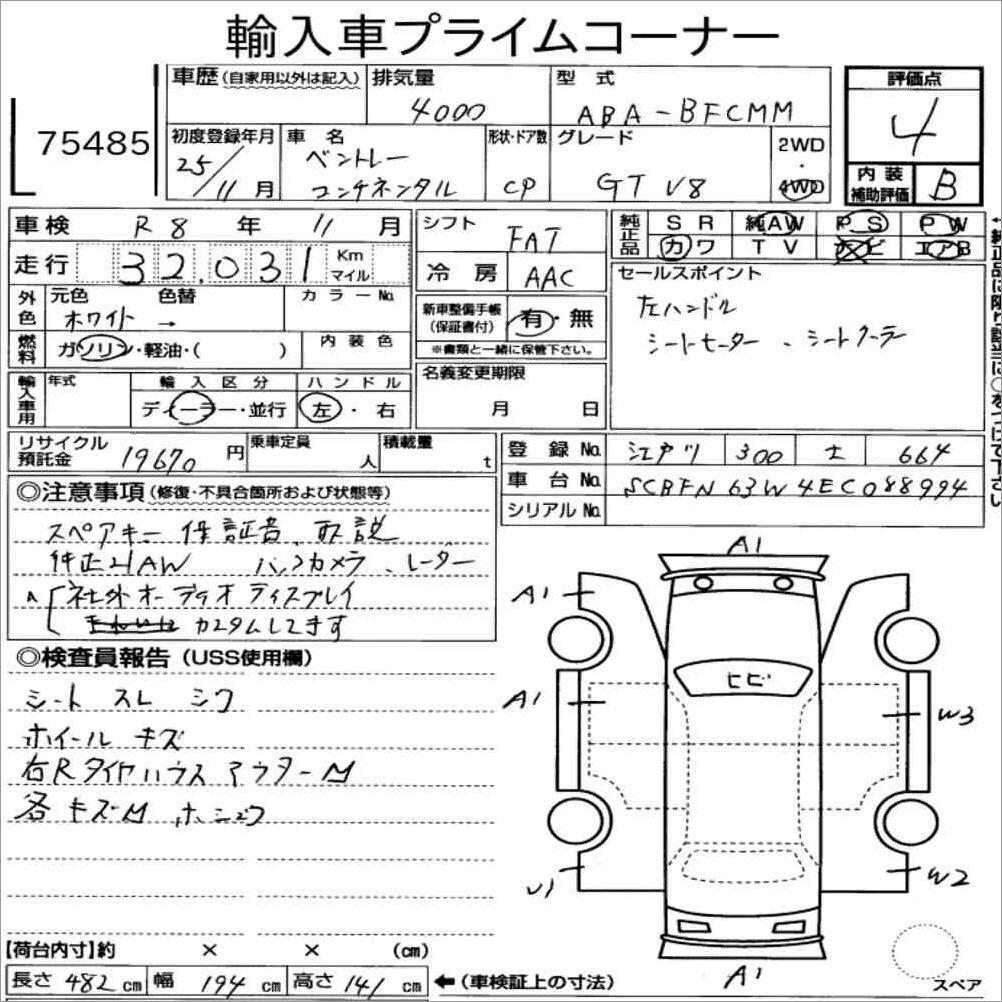 輸入車プライムコーナー
75485
車歴 (自家用以外は記入) 排気量 4000 型式 ABA-BFCMM 評価点 4
初度登録年月 25/11月 車名 ベントレー コンチネンタル 形状・ドア数 CP グレード GT V8 2WD・4WD
内装補助評価 B
車検 R8年 11月 シフト FAT 純正品 SR 純AW PS PW
カワ TV ナビ エアB
走行 32,031 Km マイル 冷房 AAC
セールスポイント
左ハンドル
シートヒーター、シートクーラー
外色 元色 ホワイト 色替 → カラーNo. 新車整備手帳(保証書付) 有・無
※書類と一緒に保管下さい。
燃料 ガソリン・軽油・( ) 内装色
名義変更期限 月 日
輸入車用 年式 輸入区分 ディーラー・並行 ハンドル 左・右
リサイクル預託金 19670円 乗車定員 人 積載量 t
登録No. 江戸川 300 664
車台No. SCBFN63W4EC088994
シリアルNo.
◎注意事項 (修復・不具合箇所および状態等)
スペアキー 保証書、取説
純正21AW バックカメラ、レーダー
社外オーディオディスプレイ
カスタムしてます
◎検査員報告 (USS使用欄)
シート スレ シワ
ホイール キズ
右Rタイヤハウス アウターM
各キズM
A1
A1
ヒビ
A1 W3
U1 W2
A1
【荷台内寸】約 × × (cm)
長さ 482 cm 幅 194 cm 高さ 141 cm ←(車検証上の寸法)
スペア